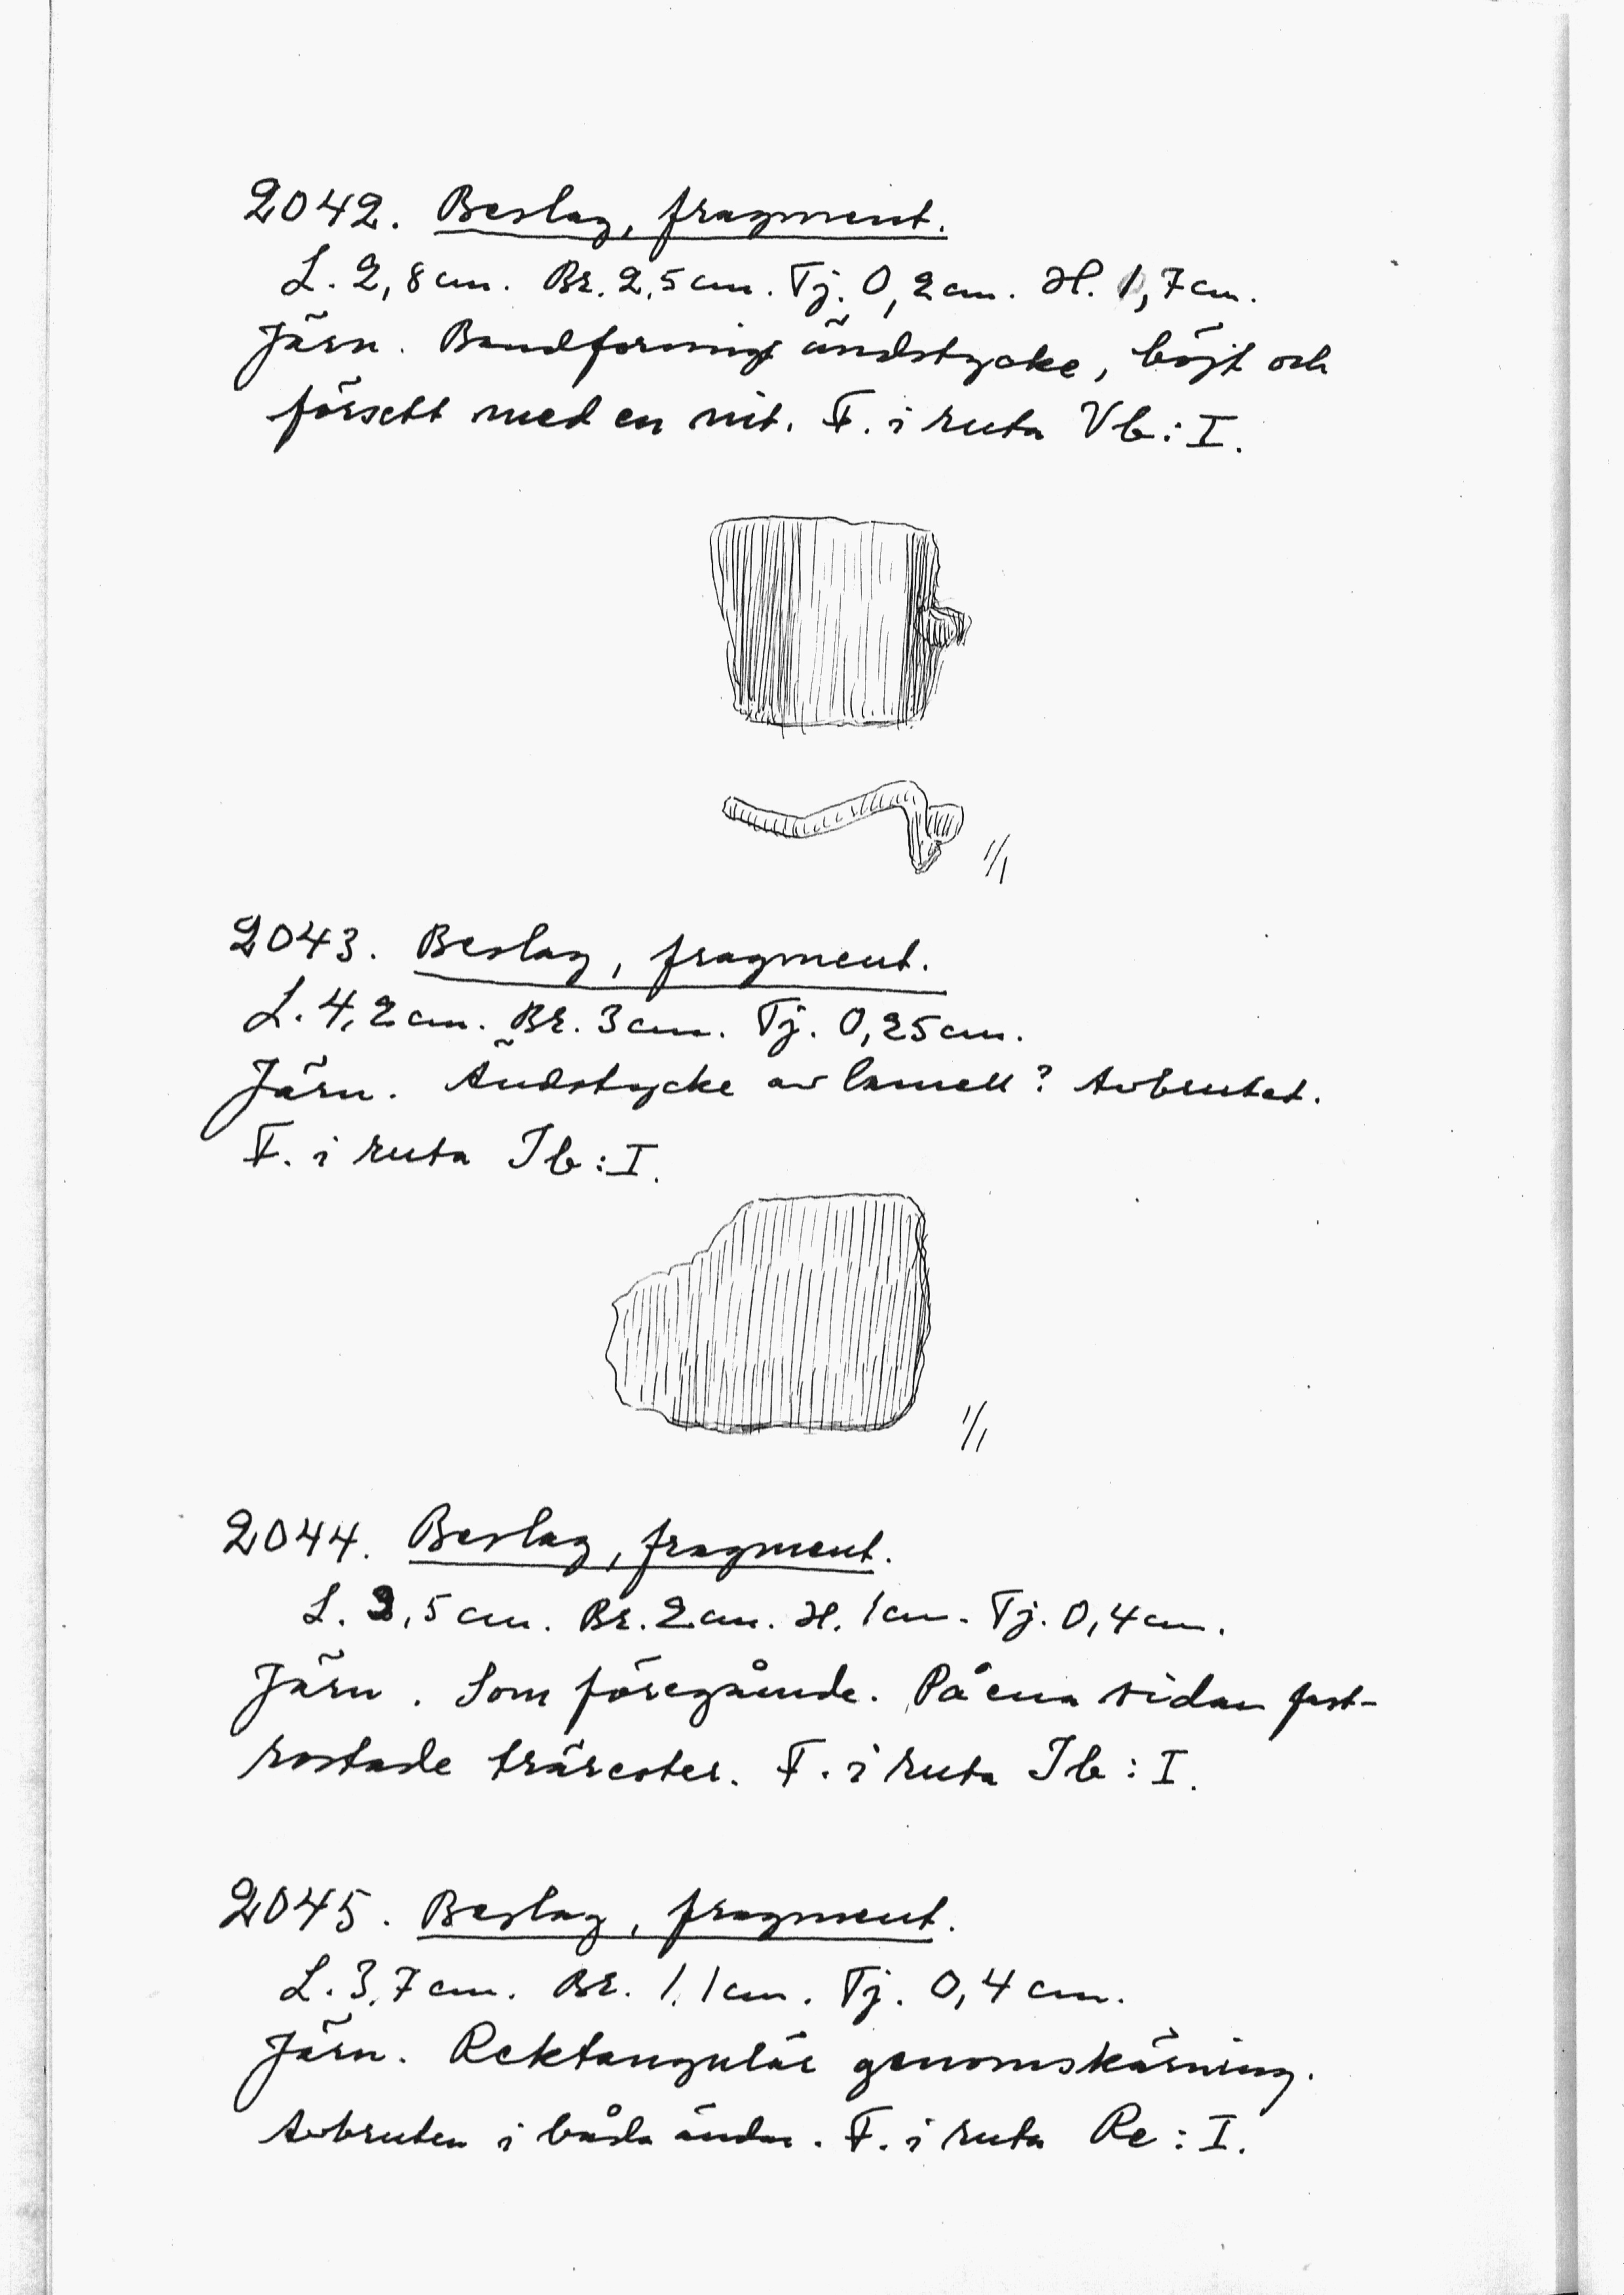 2042. Beslag, fragment.
L. 2,8 cm. Br. 2,5 cm. Tj. 0,2 cm. H. 1,7 cm.
Järn. Bandformigt ändstycke, böjt och
försett med en nit. F. i ruta Vb: I.
1/1
2043. Beslag, fragment.
L. 4,2 cm. Br. 3 cm. Tj. 0,25 cm.
Järn. Ändstycke av lamell? Avbrutet.
F. i ruta Ib: I.
1/1
2044. Beslag, fragment.
L. ,5 cm. Br. 2 cm. H. 1 cm. Tj. 0,4 cm.
Järn. Som föregående. På ena sidan fast-
rostade trärester. F. i ruta Ib: I.
2045. Beslag, fragment.
L. 3,7 cm. Br. 1,1 cm. Tj. 0,4 cm.
Järn. Rektangulär genomskärning.
Avbruten i båda ändar. F. i ruta Re: I.